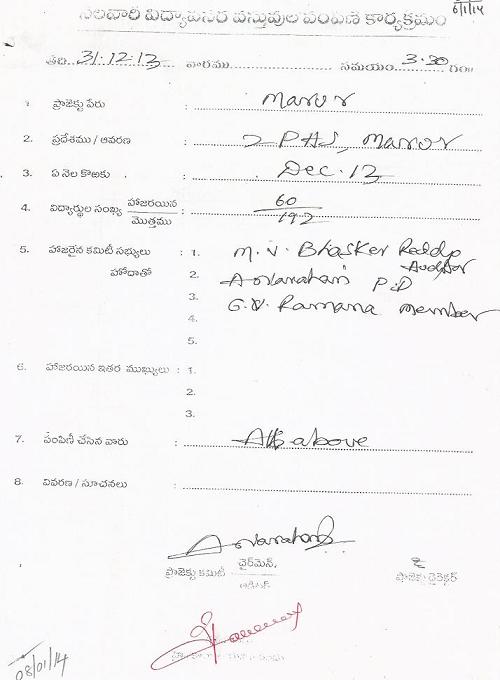 6/1/14
నెలవారీ విద్యావసర వస్తువుల పంపిణి కార్యక్రమం
తేది 31.12.13 వారము సమయం 3.30 గం॥
1. ప్రాజెక్టు పేరు : Maror
2. ప్రదేశము / ఆవరణ : ZPHS, Maror
3. ఏ నెల కొఱకు : Dec.13
4. విద్యార్థుల సంఖ్య హాజరయిన / మొత్తము : 60 / 192
5. హాజరైన కమిటీ సభ్యులు : 1. M.V. Bhasker Reddy Auditor
హోదాతో 2. P.D
3. G.V. Ramana member
4.
5.
6. హాజరయిన ఇతర ముఖ్యులు : 1.
2.
3.
7. పంపిణీ చేసిన వారు : All above
8. వివరణ / సూచనలు :
ప్రాజెక్టు కమిటీ చైర్‌మెన్, / ఆడిటర్
ప్రాజెక్టు డైరెక్టర్
08/01/14